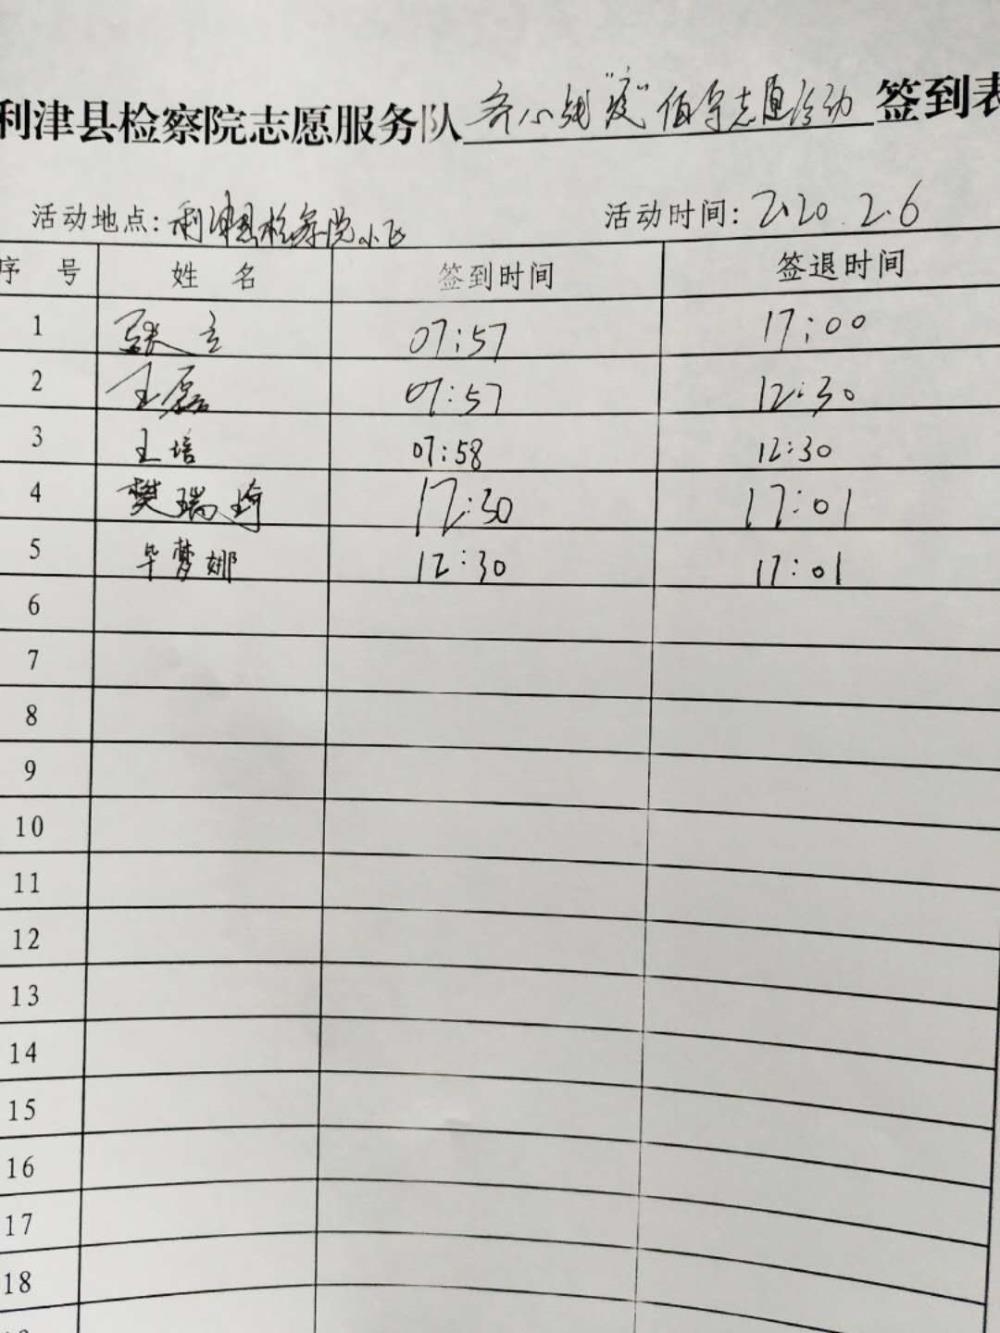 利津县检察院志愿服务队齐心战"疫"值守志愿活动签到表
活动地点:利津县检察院小区 活动时间:2020.2.6
序 号 姓 名 签到时间 签退时间
1 张立 07:57 17:00
2 王磊 07:57 12:30
3 王培 07:58 12:30
4 樊瑞琦 12:30 17:01
5 毕梦娜 12:30 17:01
6
7
8
9
10
11
12
13
14
15
16
17
18